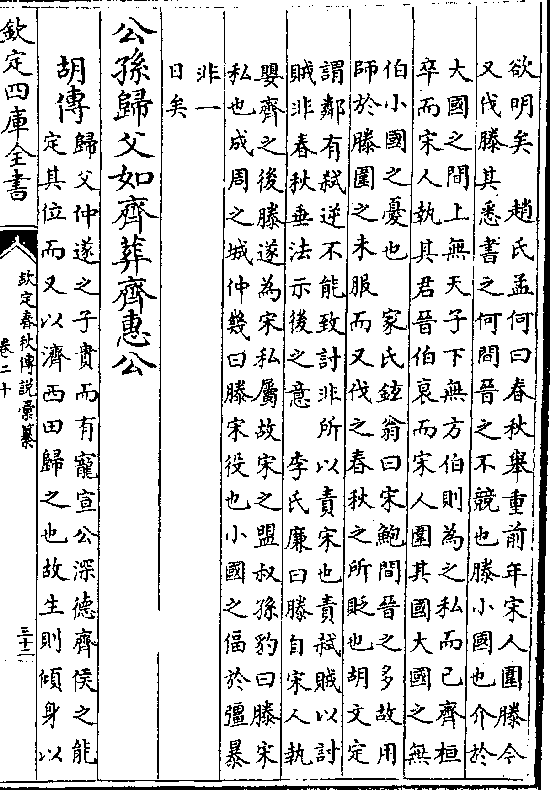 欲明矣　趙氏孟何曰春秋舉重前年宋人圍滕今
又伐滕其悉書之何問晉之不競也滕小國也介於
大國之間上無天子下無方伯則為之私而已齊桓
卒而宋人執其君晉伯哀而宋人圍其國大國之無
伯小國之憂也　家氏鉉翁曰宋鮑間晉之多故用
師於滕圍之未服而又伐之春秋之所貶也胡文定
謂鄰有弒逆不能致討非所以責宋也責弒賊以討
賊非春秋垂法示後之意　李氏廉曰滕自宋人執
嬰齊之後滕遂為宋私屬故宋之盟叔孫豹曰滕宋
私也成周之城仲幾曰滕宋役也小國之偪於彊暴
非一
日矣
公孫歸父如齊葬齊惠公
胡傳
歸父仲遂之子貴而有寵宣公深德齊侯之能
定其位而又以濟西田歸之也故生則傾身以
欽定四庫全書
欽定春秋傳說彙纂
卷二十
三十二